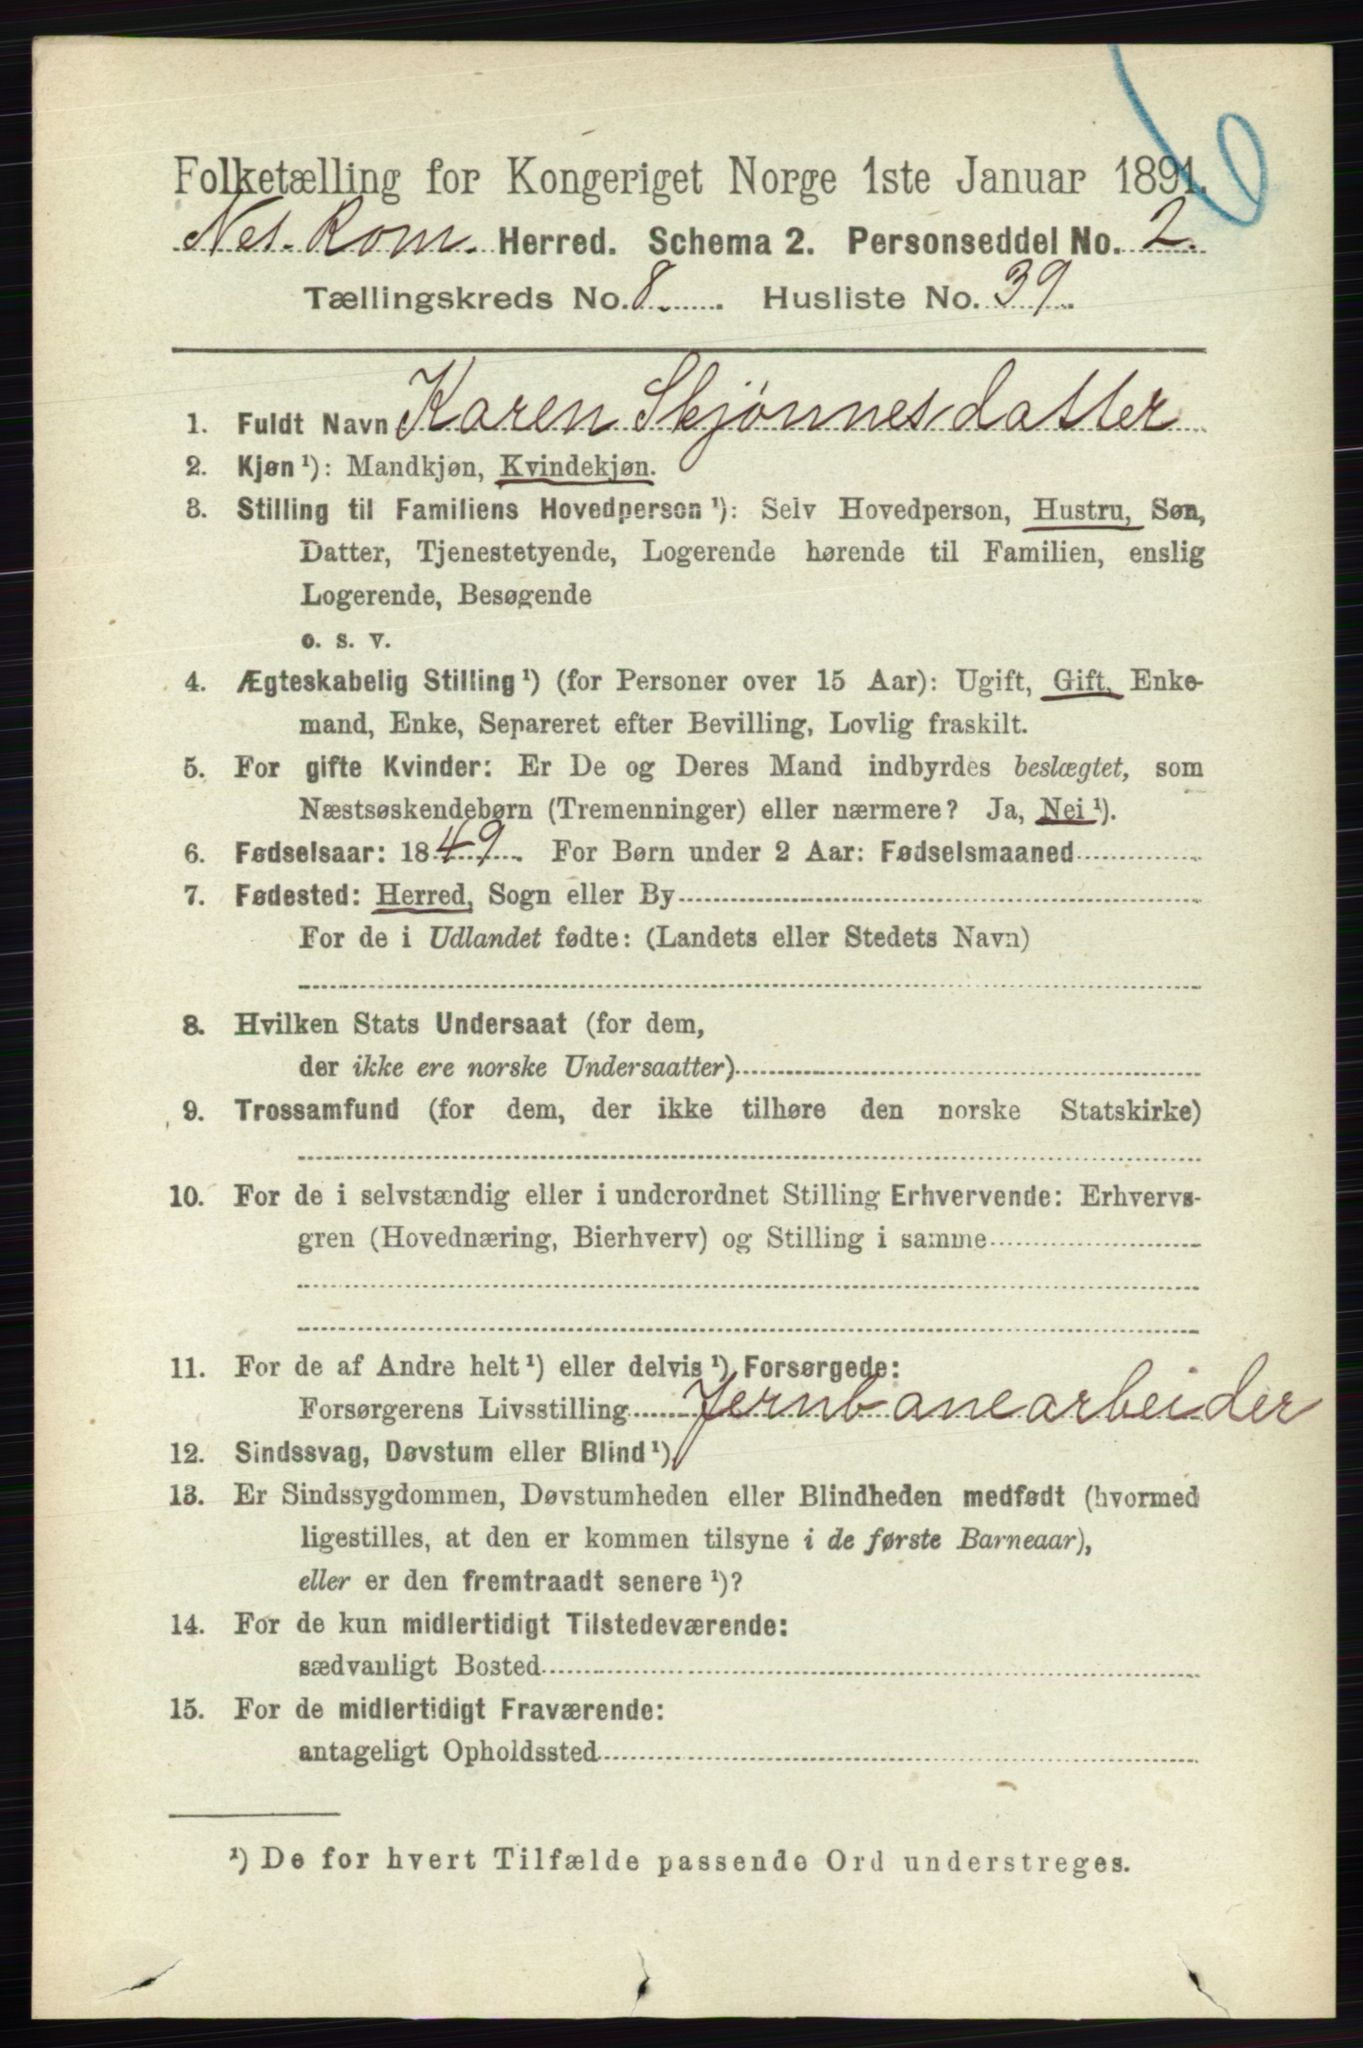 Folketælling for Kongeriget Norge 1ste Januar 1891.
Nes. Rom. Herred. Schema 2. Personseddel No. 2.
Tællingskreds No. 8. Husliste No. 39.
1. Fuldt Navn Karen Skjønnesdatter
2. Kjøn ¹): Mandkjøn, Kvindekjøn.
3. Stilling til Familiens Hovedperson ¹): Selv Hovedperson, Hustru, Søn,
Datter, Tjenestetyende, Logerende hørende til Familien, enslig
Logerende, Besøgende
o. s. v.
4. Ægteskabelig Stilling ¹) (for Personer over 15 Aar): Ugift, Gift, Enke-
mand, Enke, Separeret efter Bevilling, Lovlig fraskilt.
5. For gifte Kvinder: Er De og Deres Mand indbyrdes beslægtet, som
Næstsøskendebørn (Tremenninger) eller nærmere? Ja, Nei ¹).
6. Fødselsaar: 1849. For Børn under 2 Aar: Fødselsmaaned
7. Fødested: Herred, Sogn eller By
For de i Udlandet fødte: (Landets eller Stedets Navn)
8. Hvilken Stats Undersaat (for dem,
der ikke ere norske Undersaatter)
9. Trossamfund (for dem, der ikke tilhøre den norske Statskirke)
10. For de i selvstændig eller i underordnet Stilling Erhvervende: Erhvervs-
gren (Hovednæring, Bierhverv) og Stilling i samme
11. For de af Andre helt ¹) eller delvis ¹) Forsørgede:
Forsørgerens Livsstilling Jernbanearbeider
12. Sindssvag, Døvstum eller Blind ¹),
13. Er Sindssygdommen, Døvstumheden eller Blindheden medfødt (hvormed
ligestilles, at den er kommen tilsyne i de første Barneaar),
eller er den fremtraadt senere ¹)?
14. For de kun midlertidigt Tilstedeværende:
sædvanligt Bosted
15. For de midlertidigt Fraværende:
antageligt Opholdssted
¹) De for hvert Tilfælde passende Ord understreges.